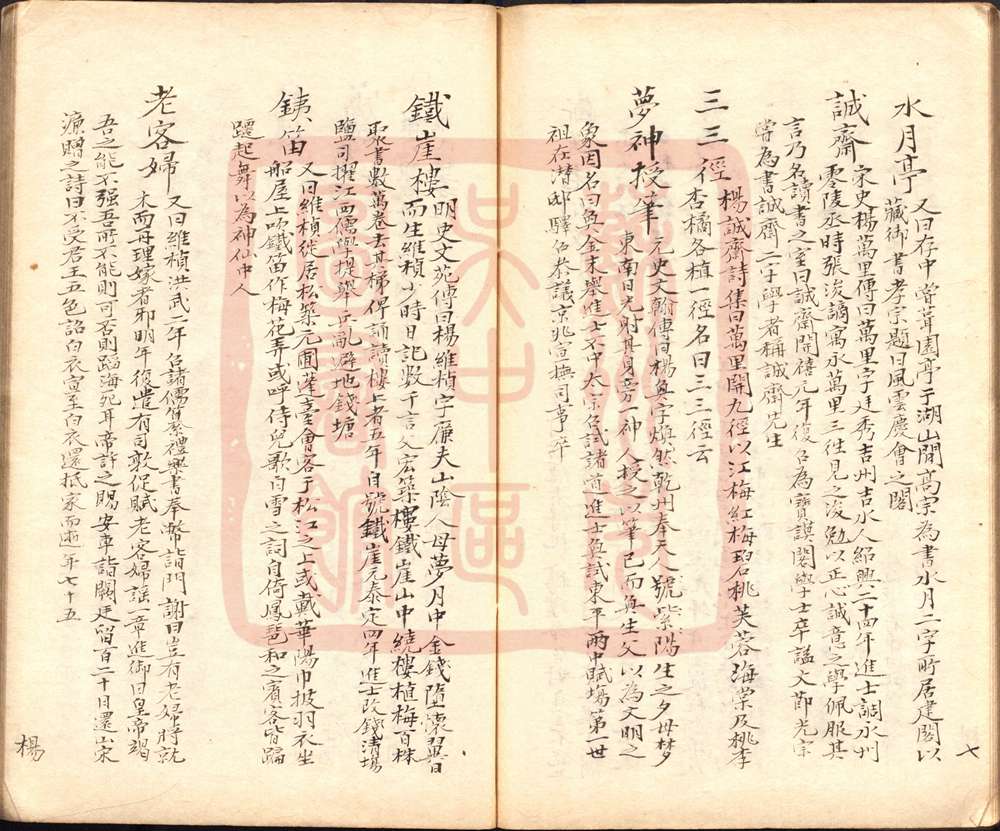 水月亭 又曰存中嘗葺園亭于湖山閒高宗為書水月二字所居建閣以
藏御書孝宗題曰風雲慶會之閣
誠齋 宋史楊萬里傳曰萬里字廷秀吉州吉水人紹興二十四年進士調永州
零陵丞時張浚謫寓永萬里三往見之浚勉以正心誠意之學佩服其
言乃名讀書之室曰誠齋開禧元年復召為寶謨閣學士卒謚文節光宗
嘗為書誠齋二字學者稱誠齋先生
三三徑 楊誠齋詩集曰萬里開九徑以江梅紅梅碧桃芙蓉海棠及桃李
杏橘各植一徑名曰三三徑云
夢神授筆 元史文翰傳曰楊奐字煥然乾州奉天人號紫陽生之夕母梦
東南日光射其身旁一神人授之以筆已而奐生父以為文明之
象因名曰奐金末舉進士不中太宗召試諸道進士奐試東平兩中賦場第一世
祖在潛邸驛召叅議京兆宣撫司事卒
鐵崖樓 明史文苑傳曰楊維楨字廉夫山陰人母夢月中金錢墮懷翼日
而生維楨少時日記数千言父宏築樓鐵崖山中繞樓植梅百株
聚書數萬卷去其梯俾誦讀樓上者五年自號鐵崖元泰定四年進士改錢清場
鹽司擢江西儒學提舉兵亂避地錢塘
銕笛 又曰維楨徙居松築元圃蓬臺會客于松江之上或戴華陽巾披羽衣坐
船屋上吹鐵笛作梅花弄或呼侍兒歌白雪之詞自倚鳳琶和之賓客皆蹁
躚起舞以為神仙中人
老客婦 又曰維楨洪武二年召諸儒纂禮樂書奉幣詣門謝曰豈有老婦將就
木而再理嫁者邪明年復遣有司敦促賦老客婦謡一章進御曰皇帝竭
吾之能不强吾所不能則可否則蹈海死耳帝許之賜安車詣闕廷留百二十日還山宋
濂贈之詩曰不受君王五色詔白衣宣至白衣還抵家而逝年七十五
七
楊